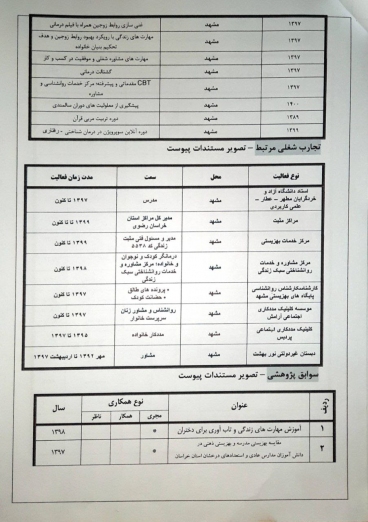 غنی سازی روابط زوجین همراه با فیلم درمانی مشهد ۱۳۹۷
مهارت های زندگی با رویکرد بهبود روابط زوجین و هدف تحکیم بنیان خانواده مشهد ۱۳۹۷
مهارت های مشاوره شغلی و موفقیت در کسب و کار مشهد ۱۳۹۷
گشتالت درمانی مشهد ۱۳۹۷
CBT مقدماتی و پیشرفته: مرکز خدمات روانشناسی و مشاوره مشهد ۱۳۹۷
پیشگیری از معلولیت های دوران سالمندی مشهد ۱۴۰۰
دوره تربیت مربی قرآن مشهد ۱۳۸۹
دوره آنلاین سوپرویژن در درمان شناختی - رفتاری مشهد ۱۳۹۹
تجارب شغلی مرتبط – تصویر مستندات پیوست
نوع فعالیت محل سمت مدت زمان فعالیت
استاد دانشگاه آزاد و
خردگرایان مطهر – عطار –
علمی کاربردی مشهد مدرس ۱۳۹۷ تا کنون
مراکز مثبت مشهد مدیر کل مراکز استان
خراسان رضوی ۱۳۹۹ تا کنون
مرکز خدمات بهزیستی مشهد مدیر و مسئول فنی مثبت
زندگی کد ۵۵۳۸ ۱۳۹۹ تا کنون
مرکز مشاوره و خدمات
روانشناختی سبک زندگی مشهد درمانگر کودک و نوجوان
و خانواده: مرکز مشاوره و
خدمات روانشناختی سبک
زندگی ۱۳۹۸ تا کنون
کارشناسکارشناس روانشناسی
پایگاه های بهزیستی مشهد مشهد • پرونده های طلاق
• حضانت کودک ۱۳۹۷ تا کنون
موسسه کلینیک مددکاری
اجتماعی آرامش مشهد روانشناس و مشاور زنان
سرپرست خانوار ۱۳۹۷ تا کنون
کلینیک مددکاری اجتماعی
پردیس مشهد مددکار خانواده ۱۳۹۵ تا ۱۳۹۷
دبستان غیردولتی نور بهشت مشهد مشاور مهر ۱۳۹۲ تا اردیبهشت ۱۳۹۷
سوابق پژوهشی – تصویر مستندات پیوست
ردیف عنوان نوع همکاری سال
مجری همکار ناظر
۱ آموزش مهارت های زندگی و تاب آوری برای دختران * ۱۳۹۸
۲ مقایسه بهزیستی مدرسه و بهزیستی ذهنی در
دانش آموزان مدارس عادی و استعدادهای درخشان استان خراسان * ۱۳۹۷